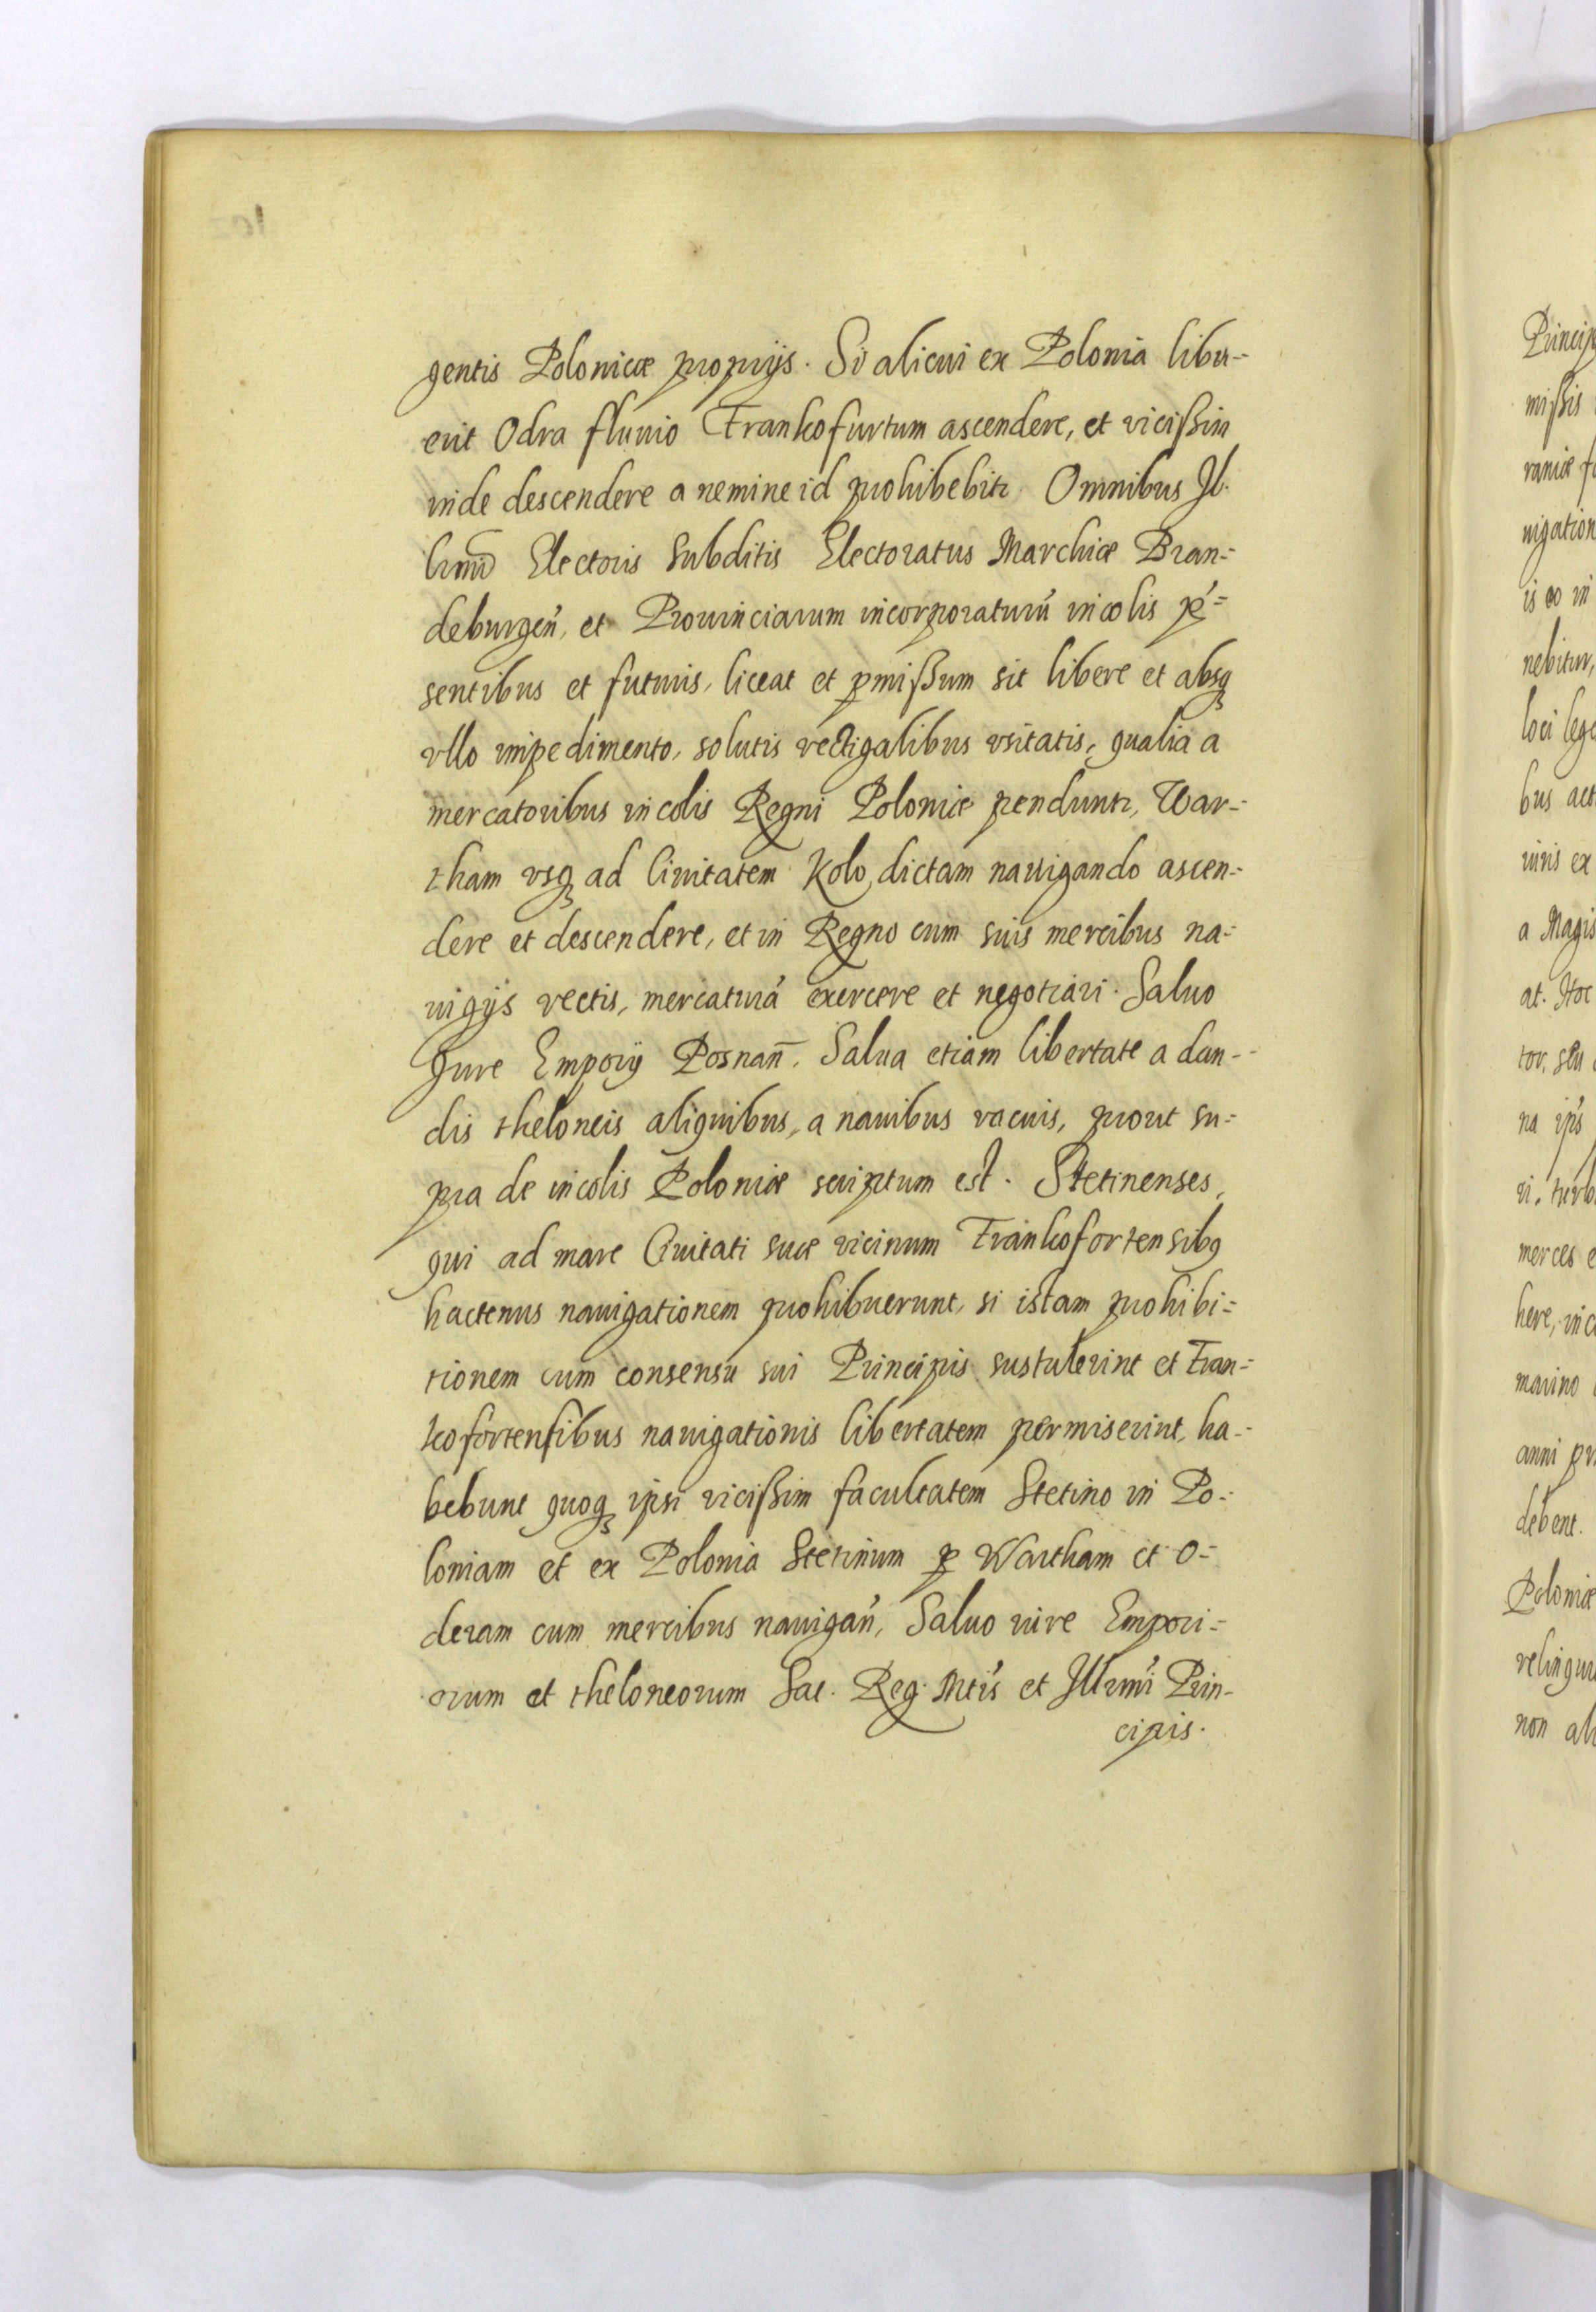 gentis Polonicæ proprijs. Si alicui ex Polonia libu-
erit Odra fluuio Frankofurtum ascendere, et vicißim
inde descendere a nemine id prohibebitr. Omnibus Il-
lrimi Electoris Subditis Electoratus Marchiæ Bran-
deburgen̄, et Prouinciarum incorporaturū incolis p̄-
sentibus et futuris, liceat et ꝑmißum sit libere et absqꝫ
vllo impedimento, solutis vectigalibus vsitatis, qualia a
mercatoribus incolis Regni Poloniæ penduntr, War-
tham vsqꝫ ad Ciuitatem Kolo dictam nauigando ascen-
dere et descendere, et in Regno cum suis mercibus na-
uigijs vectis, mercaturā exercere et negotiari. Saluo
Jure Emporij Posnan̄. Salua etiam libertate a dan-
dis theloneis aliquibus, a nauibus vacuis, prout su-
pra de incolis Poloniæ scriptum est. Stetinenses,
qui ad mare Ciuitati suæ vicinum Frankofortensibꝯ
hactenus nauigationem prohibuerunt, si istam prohibi-
tionem cum consensu sui Principis sustulerint et Fran-
kofortensibus nauigationis libertatem permiserint, ha-
bebunt quoqꝫ ipsi vicißim facultatem Stetino in Po-
loniam et ex Polonia Stetinum ꝑ Wartham et O-
deram cum mercibus nauigan̄, Saluo iure Empori-
orum et theloneorum Sac. Reg. Mtis et Illrmi Prin-
cipis.
Princip
mißis
raniæ f
uigation
is eo in
nebitur,
loci lege
bus act
uiris ex
a Magis
at. Hoc
tor, seu
na ips
ri, turb
merces e
here, in c
marino
anni pr
debent.
Poloniæ
relinqu
non ali